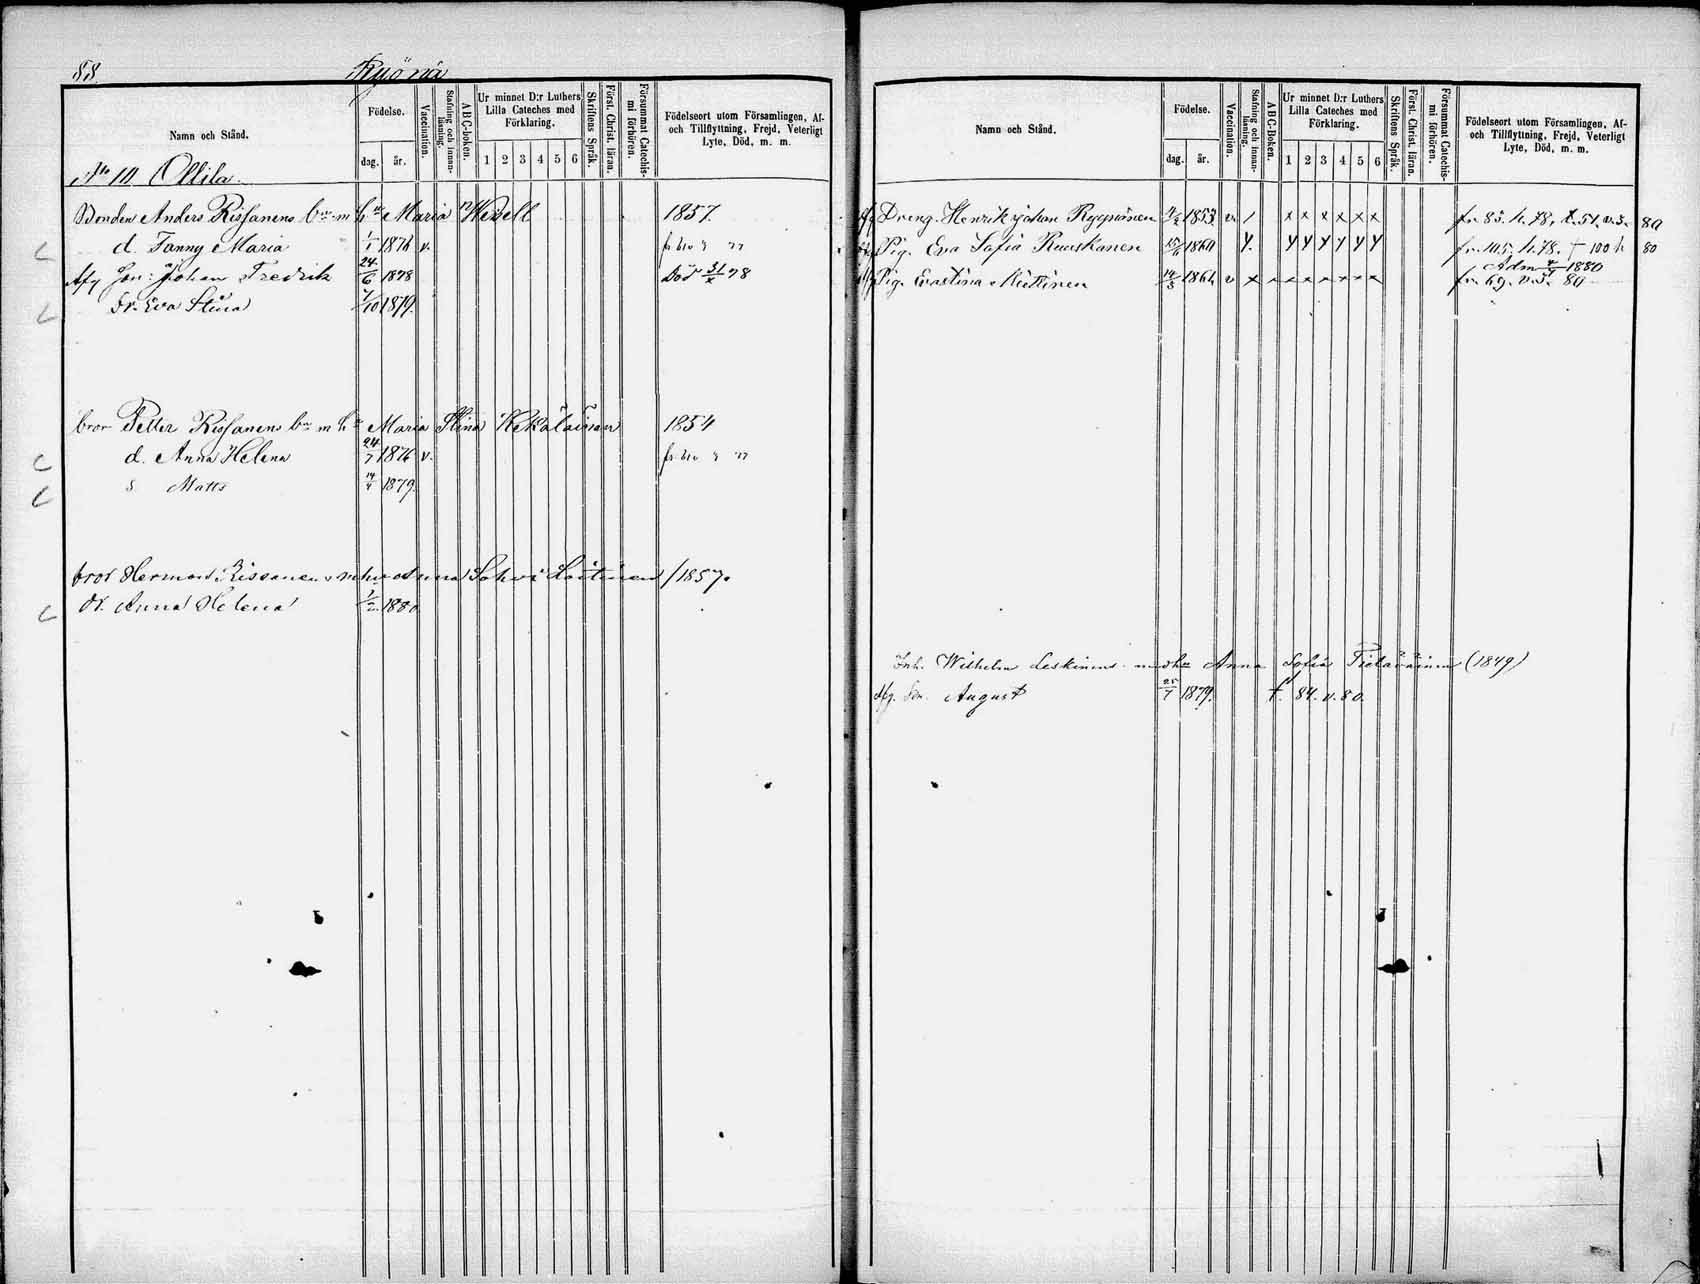 88 Kyönä
Namn och Stånd.
Födelse.
dag. år.
Vaccination.
Stafning och innanläsning.
ABC-boken.
Ur minnet D:r Luthers Lilla Cateches med Förklaring.
1 2 3 4 5 6
Skriftens Språk.
Först. Christ. läran.
Försummat Catechismi förhören.
Födelseort utom Församlingen, Af- och Tillflyttning, Frejd, Veterligt Lyte, Död, m. m.
No 10 Ollila.
Bonden Anders Rissanens b m h Maria 1857.
d. Fanny Maria 1/1 1876 v.
Afg Son: Johan Fredrik 24/6 1878 Död 31/x 78
dr. Eva Stina 7/10 1879.
bror Petter Rissanens b m h Maria Stina Kekäläinen 1854
d. Anna Helena 24/7 1876 v.
s Matts 14/4 1879.
bror Herman Rissanens m hu Anna Sohvi /1857.
dr. Anna Helena 1880
Namn och Stånd.
Födelse.
dag. år.
Vaccination.
Stafning och innanläsning.
ABC-Boken.
Ur minnet D:r Luthers Lilla Cateches med Förklaring.
1 2 3 4 5 6
Skriftens Språk.
Först. Christ. läran.
Försummat Catechismi förhören.
Födelseort utom Församlingen, Af- och Tillflyttning, Frejd, Veterligt Lyte, Död, m. m.
Dreng. Henrik Johan Ryppönen 1853 v / x x x x x x fr. 85. h. 78, t. 51. v. 3. 80
Pig. Eva Sofia Ruuskanen 1860 y. y y y y y y fr. 105. h. 78. † 100 h 80
Adm 1880
Pig. Evastina Miettinen 14/3 1861 v x x x x x x x fr. 69. v. 3. 80
Inh. Wilhelm Leskinens m hu Anna Sofia (1849)
Afg. Son. August 25/7 1879. t. 84. v. 80.